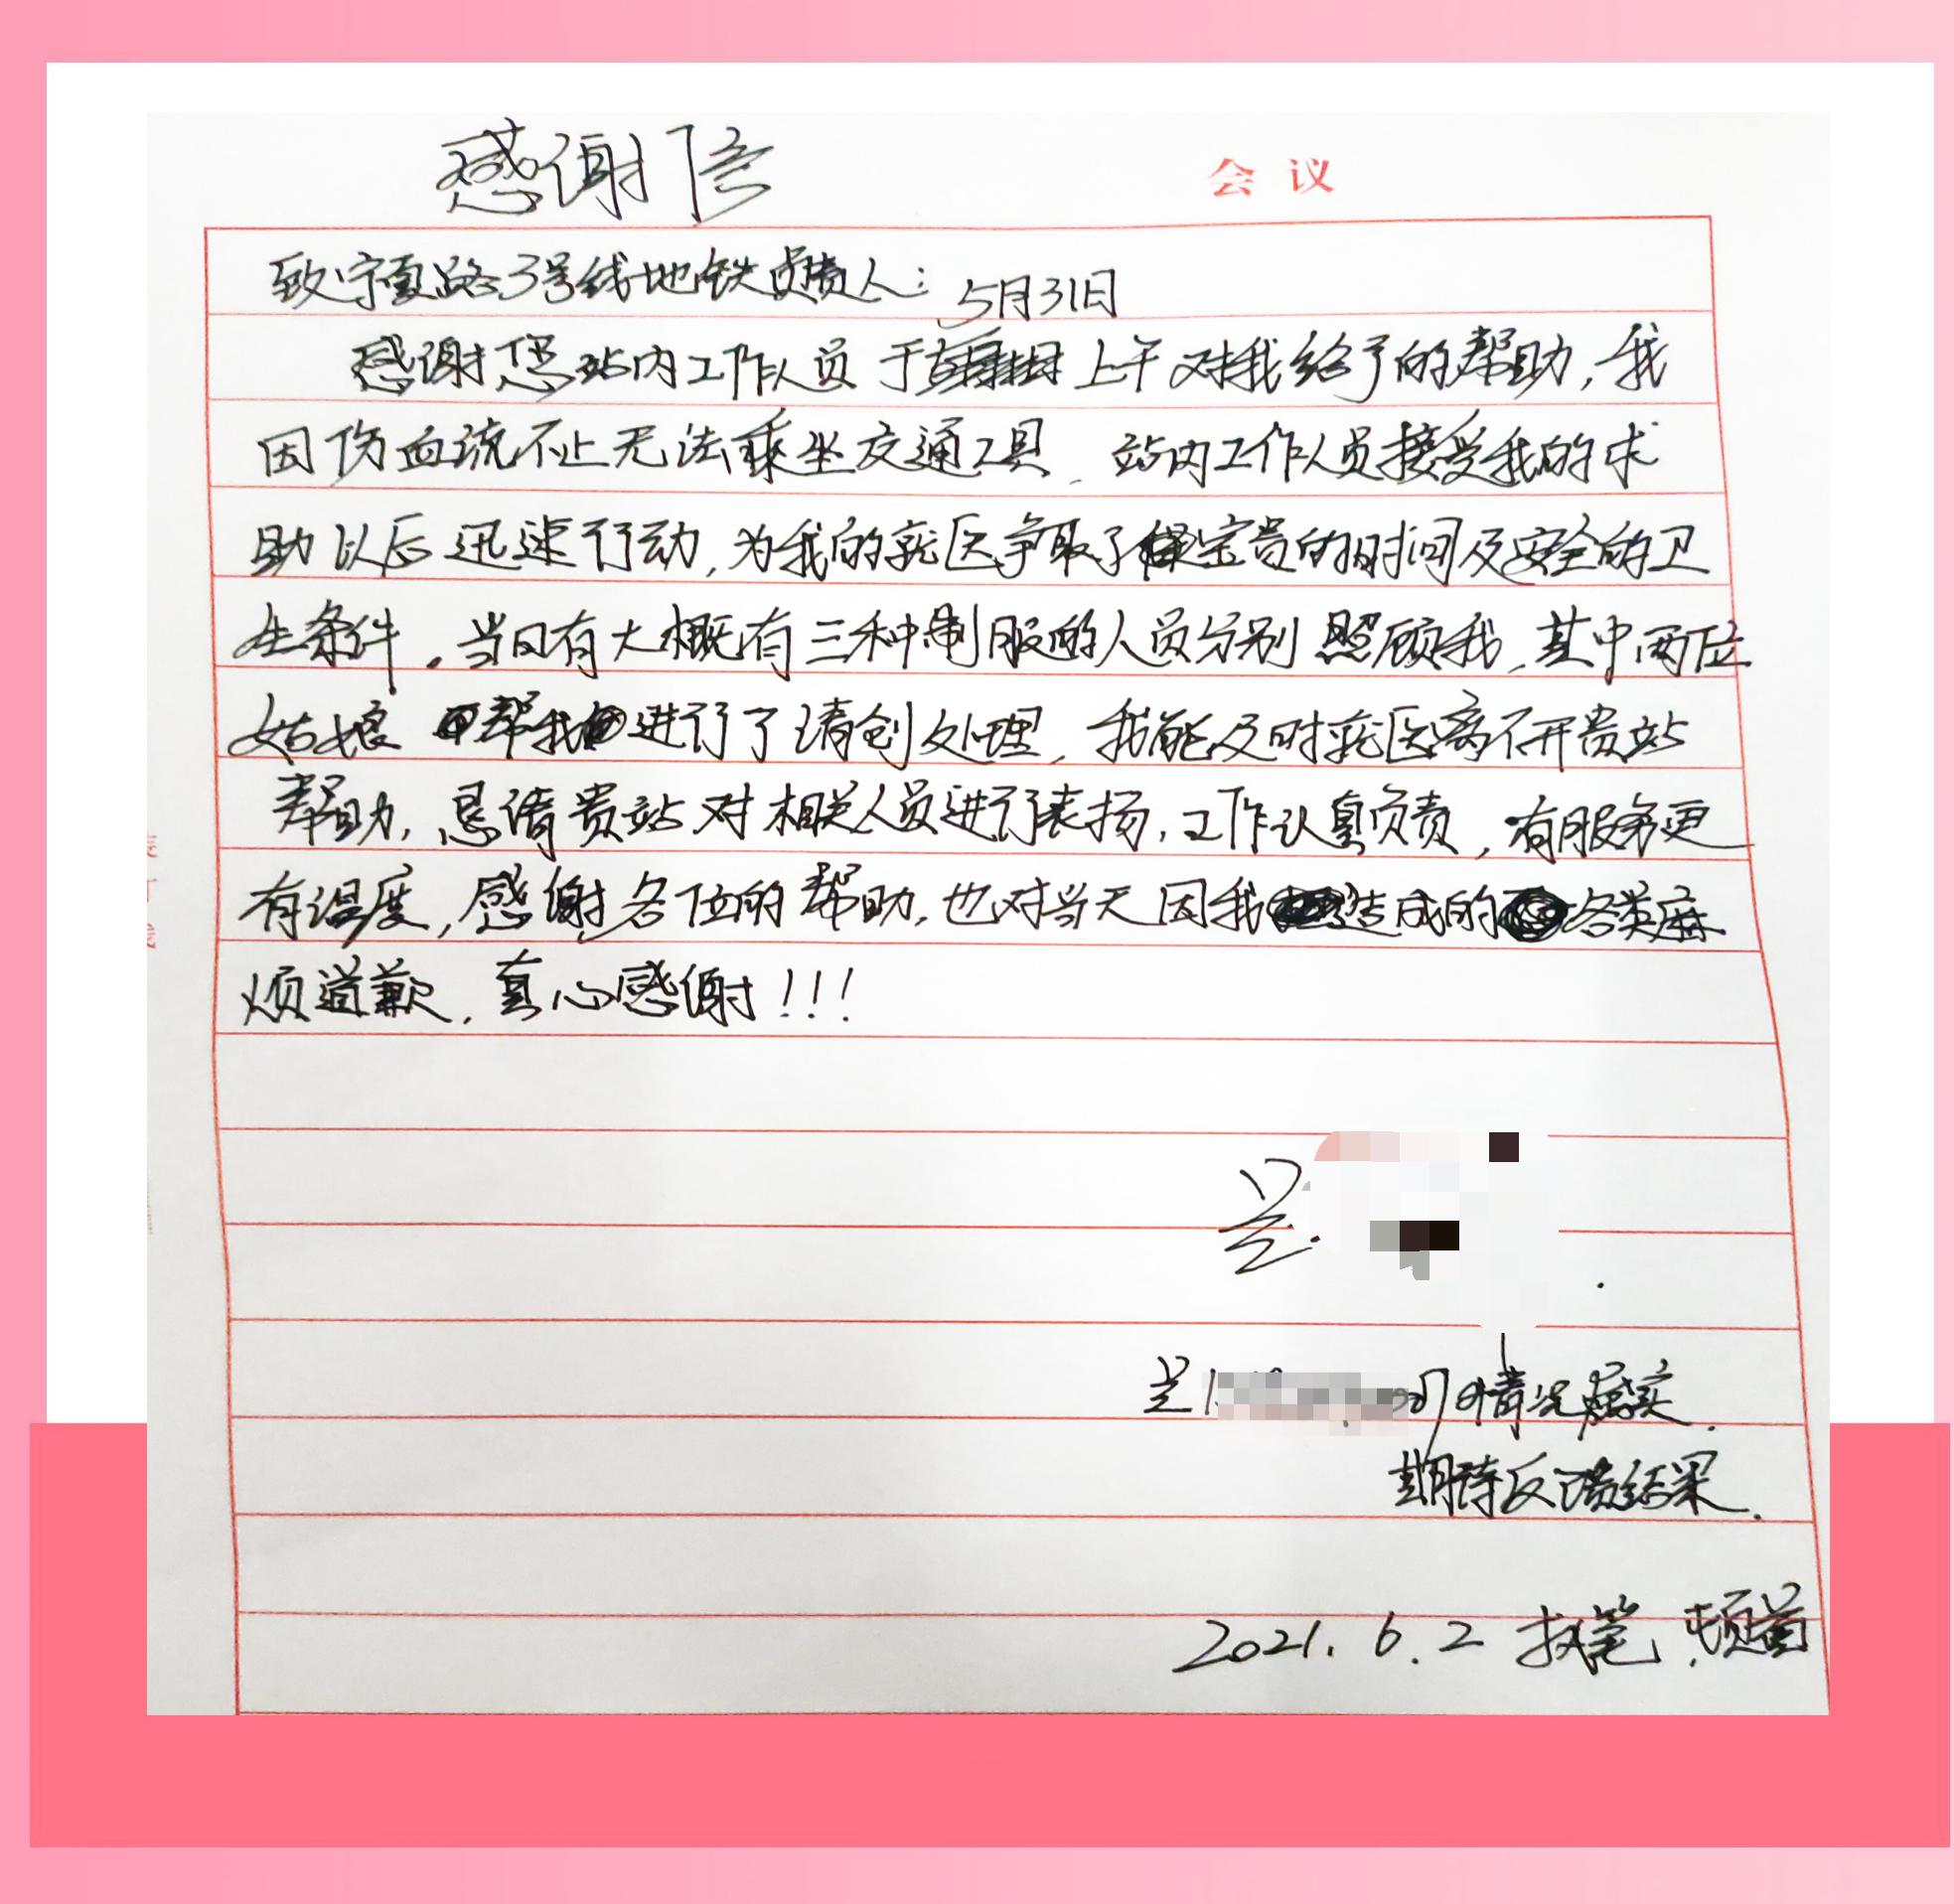 感谢信
会议
致宁夏路3号线地铁负责人：
5月31日
感谢您站内工作人员于上午对我给予的帮助，我
因伤血流不止无法乘坐交通工具，站内工作人员接受我的求
助以后迅速行动，为我的就医争取了宝贵的时间及安全的卫
生条件。当日有大概有三种制服的人员分别照顾我，其中两位
姑娘帮我进行了清创处理，我能及时就医离不开贵站
帮助，恳请贵站对相关人员进行表扬，工作认真负责，有服务更
有温度，感谢各位的帮助，也对当天因我造成的各类麻
烦道歉，真心感谢！！！
情况属实.
期待反馈结果.
2021.6.2 执笔，顿首